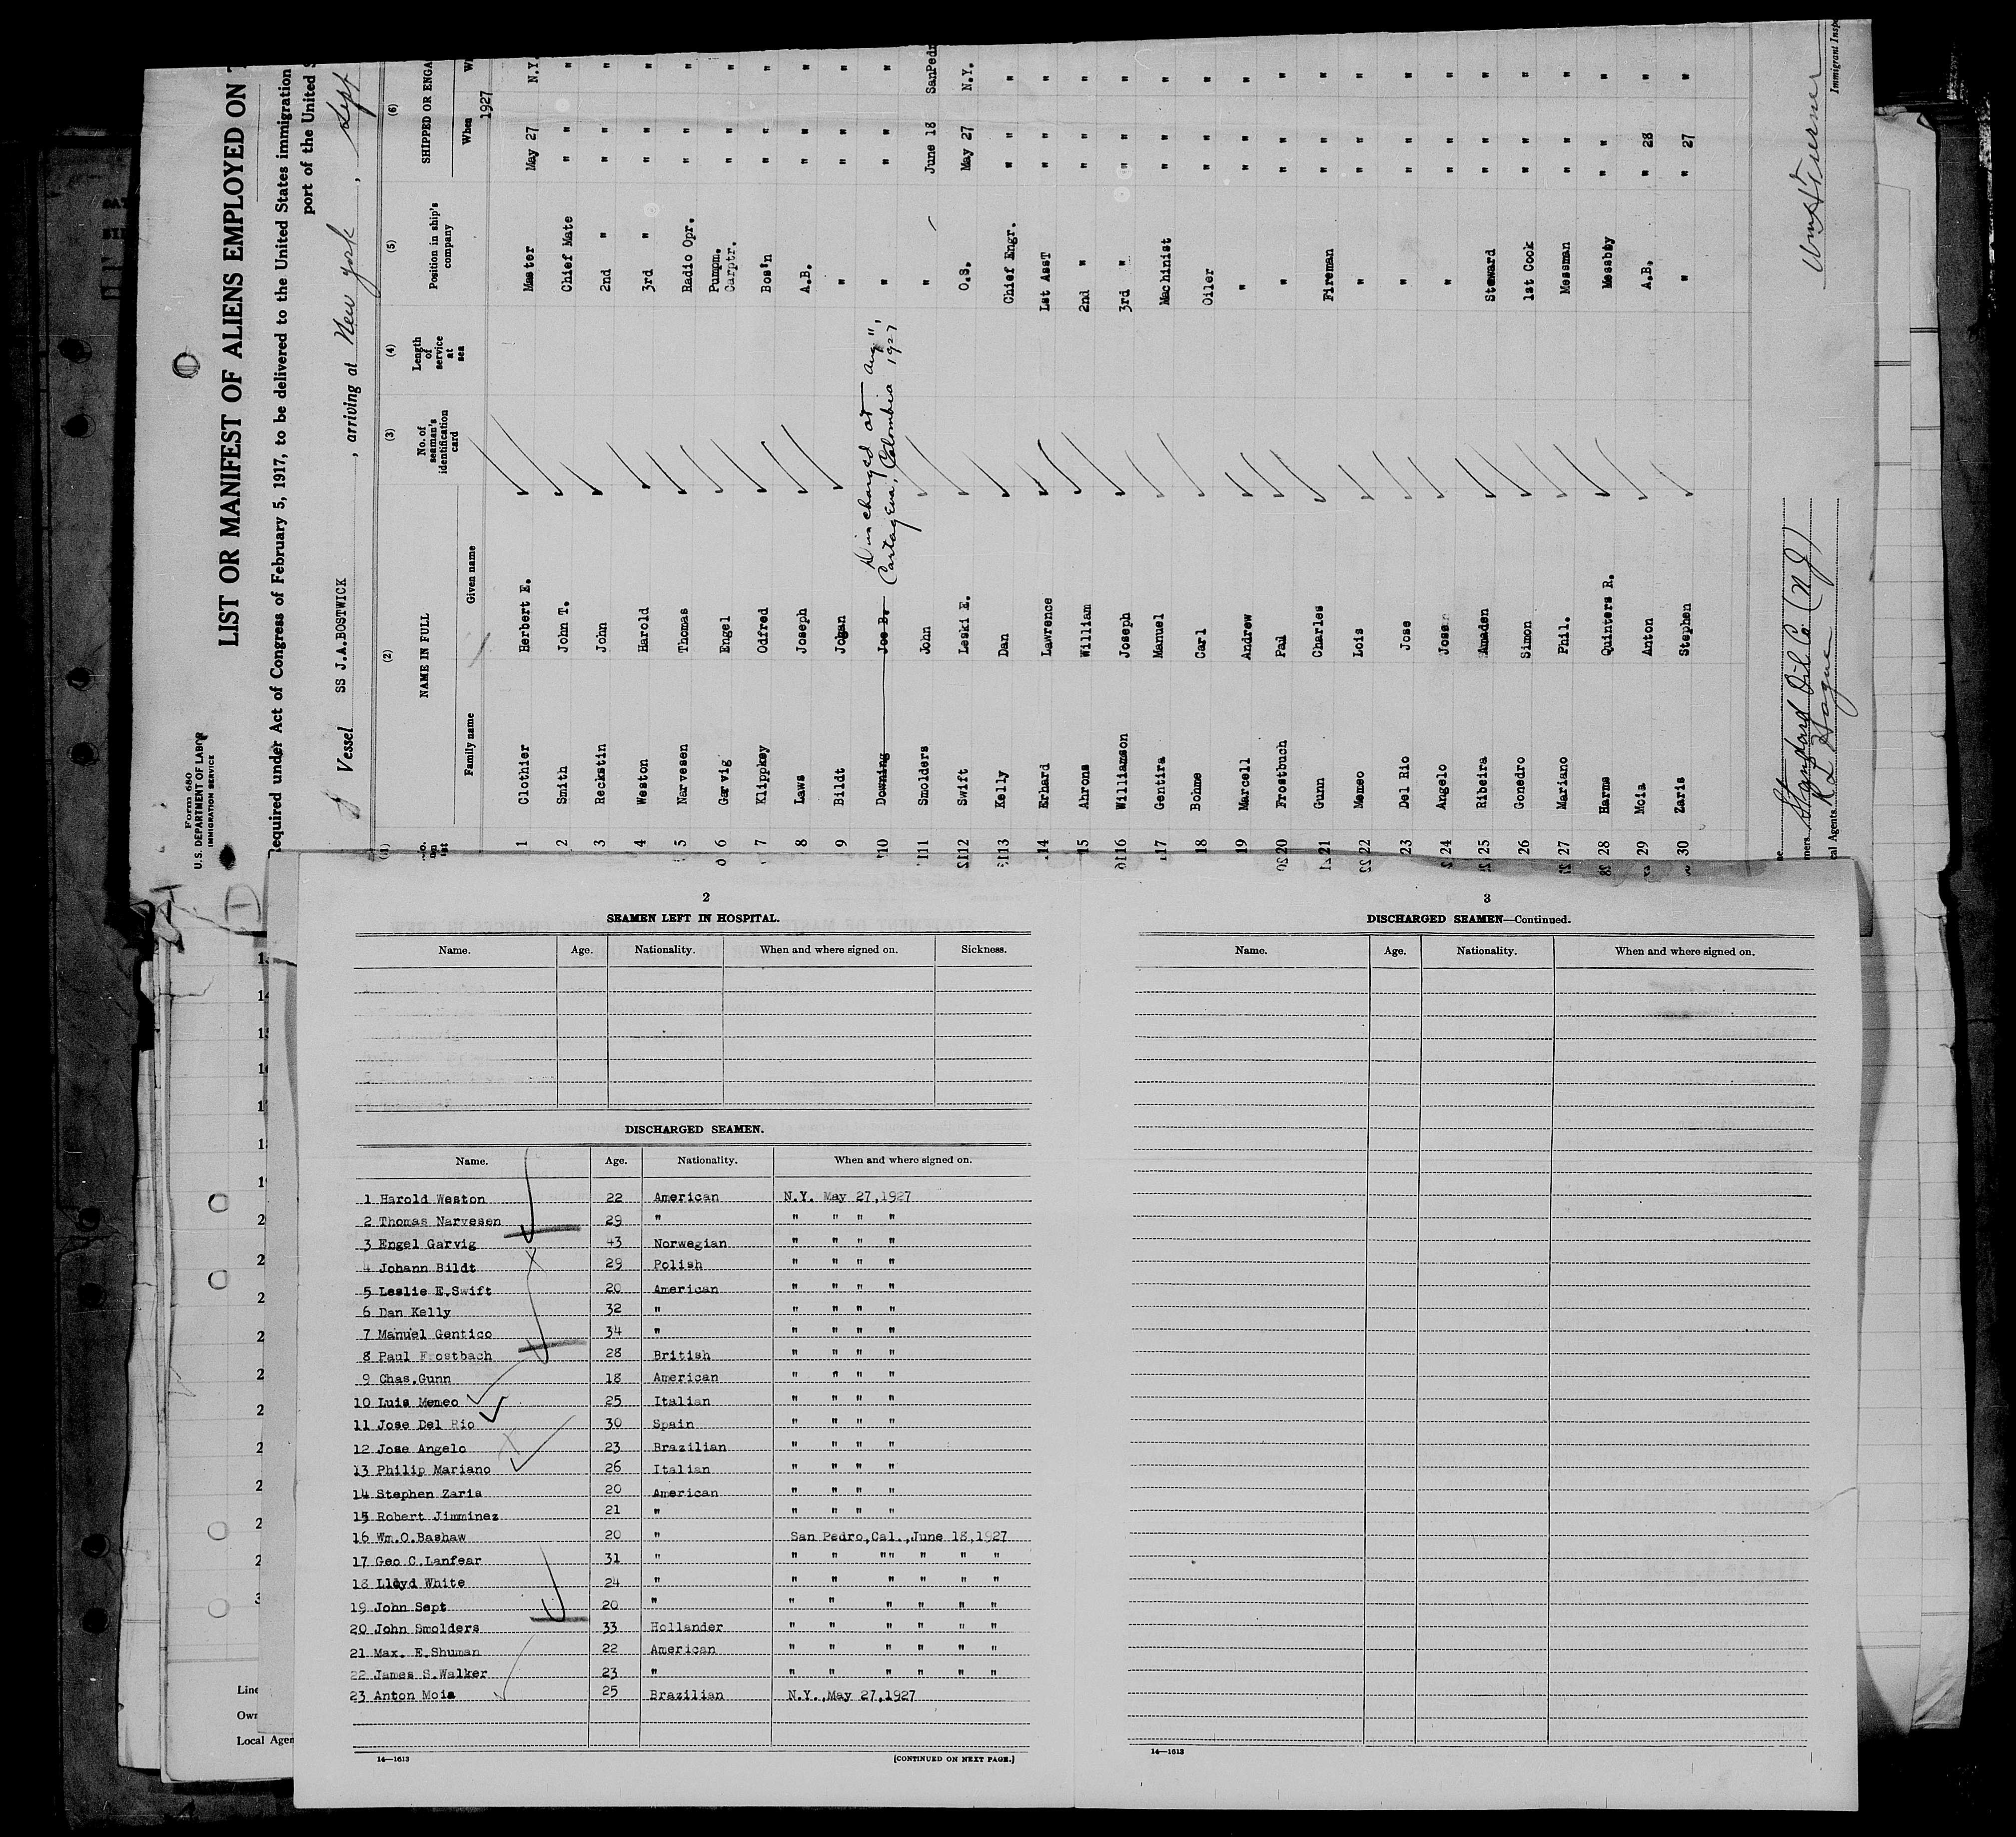 Form 680
U.S. DEPARTMENT OF LABOR
IMMIGRATION SERVICE
LIST OR MANIFEST OF ALIENS EMPLOYED ON
required under Act of Congress of February 5, 1917, to be delivered to the United States immigration
port of the United
Vessel SS J.A.BOSTWICK, arriving at New York, Sept
(2) (3) (4) (5) (6)
NAME IN FULL
Family name Given name
No. of seaman's identification card
Length of service at sea
Position in ship's company
SHIPPED OR ENGA
When
1927
1 Clothier Herbert E. Master May 27 N.Y.
2 Smith John T. Chief Mate " " "
3 Reckstin John 2nd " " " "
4 Weston Harold 3rd " " " "
5 Narvesen Thomas Radio Opr. " " "
6 Garvig Engel Pumpm. Carptr. " " "
7 Klippkey Odfred Bos'n " " "
8 Laws Joseph A.B. " " "
9 Bildt Johan " " " "
10 Downing Joe B. Discharged at Cartagena, Colombia Aug 11, 1927 " " " "
11 Smolders John " June 18 SanPedr
12 Swift Leski E. O.S. May 27 N.Y.
13 Kelly Dan Chief Engr. " " "
14 Erhard Lawrence 1st AssT " " "
15 Ahrons William 2nd " " " "
16 Williamson Joseph 3rd " " " "
17 Gentira Manuel Machinist " " "
18 Bohme Carl Oiler " " "
19 Marcell Andrew " " " "
20 Frostbuch Paul " " " "
21 Gunn Charles Fireman " " "
22 Memeo Lois " " " "
23 Del Rio Jose " " " "
24 Angelo Jose " " " "
25 Ribeira Amaden Steward " " "
26 Gonedro Simon 1st Cook " " "
27 Mariano Phil. Messman " " "
28 Harms Quinters R. Messboy " " "
29 Moia Anton A.B. " 28 "
30 Zaris Stephen " " 27 "
Standard Oil Co (N J)
R L Hague
cal Agents
Immigrant Insp
2
SEAMEN LEFT IN HOSPITAL.
Name. Age. Nationality. When and where signed on. Sickness.
DISCHARGED SEAMEN.
Name. Age. Nationality. When and where signed on.
1 Harold Weston 22 American N.Y. May 27,1927
2 Thomas Narvesen 29 " " " " "
3 Engel Garvig 43 Norwegian " " " "
4 Johann Bildt 29 Polish " " " "
5 Leslie E.Swift 20 American " " " "
6 Dan Kelly 32 " " " " "
7 Manuel Gentico 34 " " " " "
8 Paul Frostbach 28 British " " " "
9 Chas.Gunn 18 American " " " "
10 Luis Memeo 25 Italian " " " "
11 Jose Del Rio 30 Spain " " " "
12 Jose Angelo 23 Brazilian " " " "
13 Philip Mariano 26 Italian " " " "
14 Stephen Zaris 20 American " " " "
15 Robert Jimminez 21 " " " " "
16 Wm.O.Bashaw 20 " San Pedro,Cal.,June 18,1927
17 Geo C.Lanfear 31 " " " "" " " "
18 Lloyd White 24 " " " " " " "
19 John Sept 20 " " " " " " "
20 John Smolders 33 Hollander " " " " " "
21 Max. E.Shuman 22 American " " " " " "
22 James S.Walker 23 " " " " " " "
23 Anton Mois 25 Brazilian N.Y.,May 27,1927
14—1613 [CONTINUED ON NEXT PAGE.]
3
DISCHARGED SEAMEN—Continued.
Name. Age. Nationality. When and where signed on.
14—1613
Line
Own
Local Agen